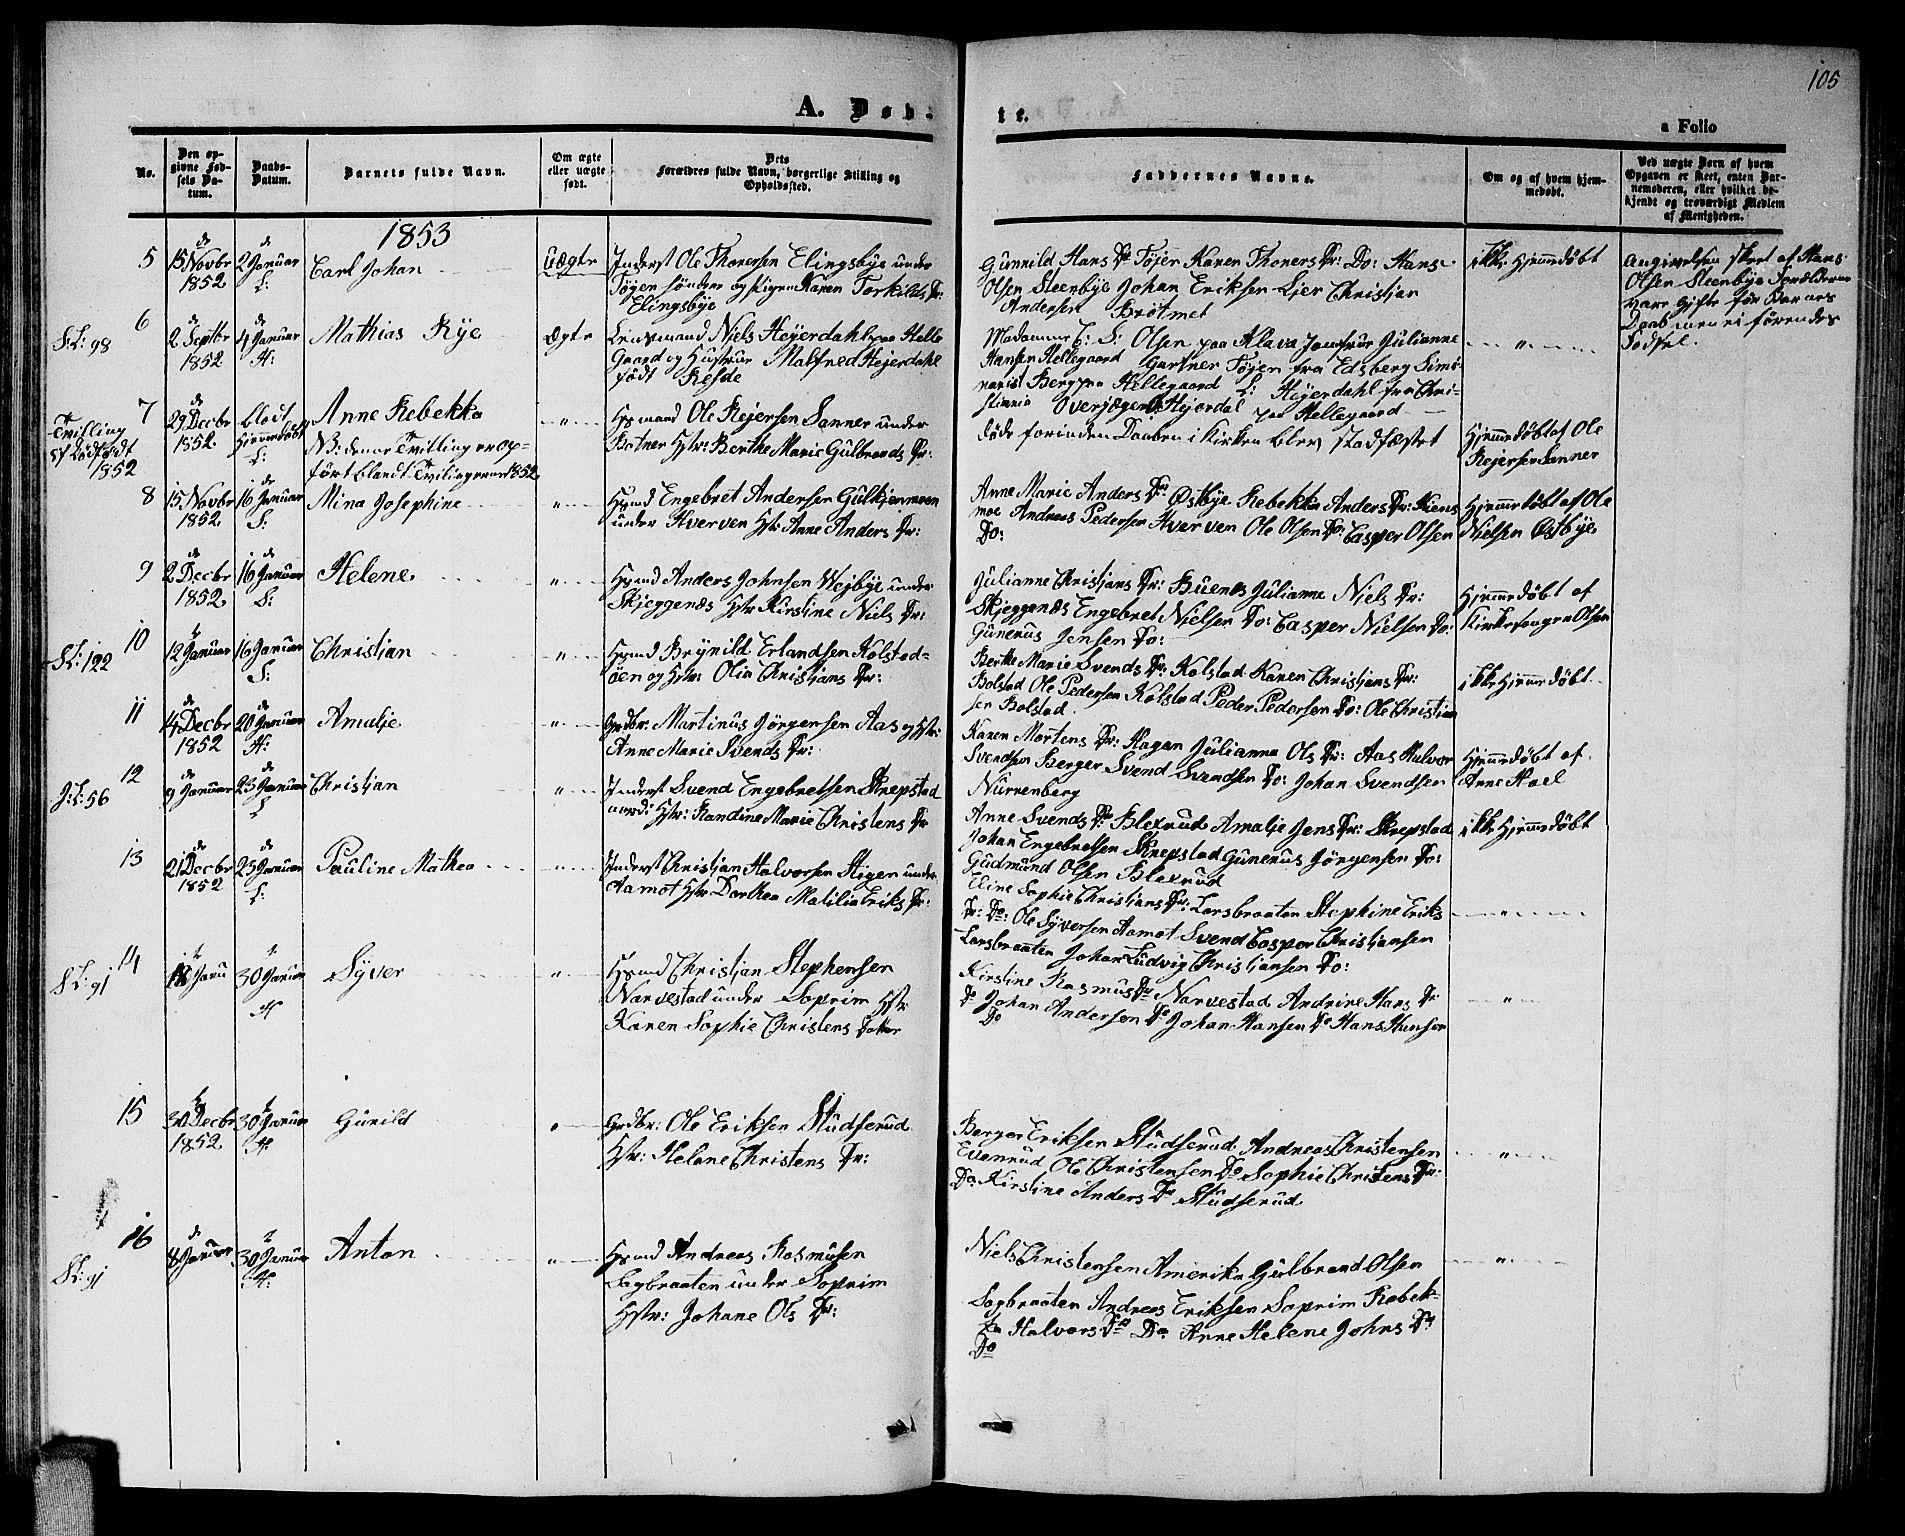 105
A. Døb-
te.
a Folio
No.
Den op-
givne Fød-
sels Da-
tum.
Daabs-
Datum.
Barnets fulde Navn.
Om ægte
eller uægte
født.
Dets
Forældres fulde Navn, borgerlige Stilling og
Opholdssted.
Faddernes Navne.
Om og af hvem hjem-
medøbt.
Ved uægte Børn af hvem
Opgaven er skeet, enten Bar-
nemoderen, eller hvilket be-
kjendt og troværdigt Medlem
af Menigheden.
1853
5
d
15 Novbr
1852
d
2 Januar
Carl Johan
uægte
Inderst Ole Thoresen Elingsbye under
Tøyen søndre og pigen Karen Torkilds Dr:
Elingsbye
Gunnild Hans Dr Tøjer Karen Thoners Dr: Do: Hans
Olsen Steenbye Johan Eriksen Lier Christian
Andersen Brotmet
ikke hjemmedøbt
Angivelsen skeet af Hans
Olsen Steenbye Forældrene
vare gifte før Barnets
Daab men ei før endes
Fødsel.
6
98
d
2 Septbr
1852
d
4 Januar
H:
Mathias Rye
ægte
Lensmand Niels Hejerdahl paa Helle
Gaard og Hustrue Malfred Hejerdahl
født Refde
Madamme C: S: Olsen paa Klava Jomfrue Gulianne
Hansen Hellegaard Gartner Tøjen fra Edsberg Sems
narist Berg paa Hellegaard S: Hejerdahl fra Chri-
stiania Overjægen Hejerdal paa Hellegaard
7
Tvilling
1852
d
29 Decbr
1852
blot
hjemmedøbt
Anne Rebekka
NB: denne Tvilling er op-
ført blandt Tvilingerne 1852
Hsmand Ole Rejersen Sanner under
Botner Hstr: Berthe Marie Gulbrands Dr:
døde forinden Daaben i Kirken blev stadfæstet
Hjemmedøbt af Ole
Rejersen Sanner
8
15 Novbr
1852
d
16 Januar
S:
Mina Josephine
Hsmd Engebret Andersen Gulkjernmoen
under Kverven Hstr: Anne Anders Dr:
Anne Marie Anders Dr Østbye Rebekka Anders Dr: Kiens
moe Andreas Pedersen Hverven Ole Olsen Do: Casper Olsen
Do:
Hjemmedøbt af Ole
Nielsen Østbye
9
d
2 Decbr
1852
d
16 Januar
S:
Helene
Hsmd Anders Johnsen Wejbye under
Skjeggenæs Hstr Kirstine Niels Dr:
Gulianne Christjans Dr: Buenæs Gulianne Niels Dr:
Skjeggenæs Engebret Nielsen Do: Casper Nielsen Do:
Gunerus Jensen Do:
Hjemmedøbt af
Kirkesanger Olsen
10
122
12 Januar
16 Januar
S:
Christjan
Hsmd Brynild Erlandsen Kolstad-
øen og Hstr: Olia Christjans Dr:
Berthe Marie Svends Dr: Kolstad Karen Christjans Dr:
Bolstad Ole Pedersen Kolstad Peder Pedersen Do: Ole Christian
sen Bolstad
ikke Hjemmedøbt
11
d
4 Decbr
1852
d
20 Januar
H:
Amalje
Grdbr: Martinus Jørgensen Aas og Hstr:
Anne Marie Svends Dr:
Karen Mortens Dr: Hagan Gulianna Ols Dr: Aas Halvor
Svendsen Berger Svend Svendsen Do: Johan Svendsen
Nurrenberg
Hjemmedøbt af
Arne Hael
12
56
d
9 Januar
d
23 Januar
Christjan
Inderst Svend Engebretsen Skrepstad
nordi Hstr: Randine Marie Christens Dr
Anne Svends Dr Blexrud Amalje Jens Dr: Skrepstad
Johan Engebretsen Skrepstad Gunerus Jørgensen Do:
Gudmund Olsen Blexrud
ikke Hjemmedøbt
13
d
21 Decbr
1852
d
23 Januar
Pauline Mathea
Inderst Christjan Halvorsen Stigen under
Aamot Hstr Dorthea Matilia Eriks Dr:
Eline Sophie Christjans Dr: Larsbraaten Stephine Eriks
Dr: Do: Ole Syversen Aamot Svend Casper Christjansen
Larsbraaten Johan Ludvig Christjansen Do:
14
91
18 Janu
30 Januar
H
Syver
Hsmd Christjan Stephensen
Narvestad under Soprim Hstr
Karen Sophie Christens Datter
Kirstine Rasmus Dr Narvestad Andrine Hans Dr
Do Johan Andersen Do Johan Hansen Do Hans Hansen
Do
15
30 Decbr
1852
30 Januar
H:
Gunild
Grdbr: Ole Eriksen Studserud
Hstr: Helene Christens Dr:
Berger Eriksen Studserud Andreas Christensen
Evenrud Ole Christensen Do Sophie Christens Dr:
Do. Kirstine Anders Dr Studserud
16
91
d
8 Januar
30 Januar
H:
Anton
Hsmd Andreas Rasmusen
Sagbraaten under Soprim
Hstr: Johane Ols Dr:
Niels Christensen Amerika Gulbrand Olsen
Sagbraaten Andreas Eriksen Soprim Rebek-
ka Halvors Dr Do. Anne Helene Johns Dr
Do